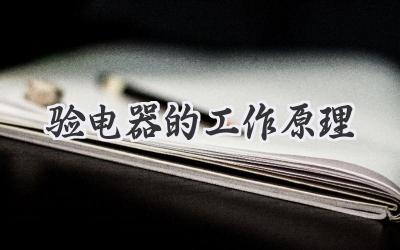 验电器的工作原理